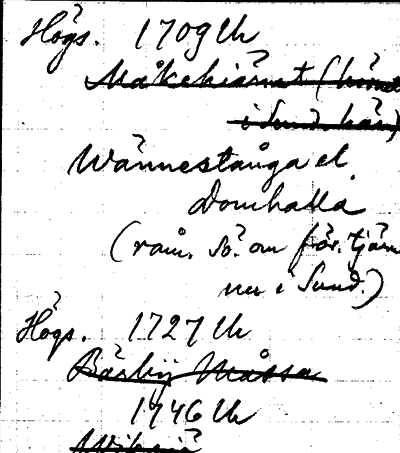 Högs. 1709 Uh
Måkekiärnet (
i Sund. här)
Wännestånga el.
Domhalla
(råm. sö. om för. tjärn
nu i Sund.)
Högs. 1727 Uh
Bärby Måssa
1746 Uh